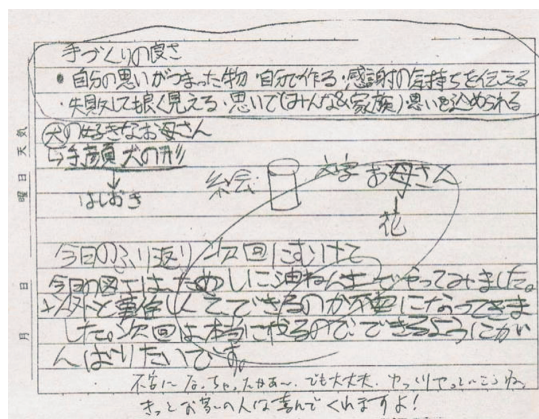 手づくりの良さ
・自分の思いがつまった物・自分で作る・感謝の気持ちを伝える
・失敗しても良く見える・思いで(みんな&家族)思いを込められる
犬の好きなお母さん
↳手顔犬の形
はしおき
絵 文字 お母さん
花
天気
曜日
今日のふり返り 次回にむけて
今日の図工はためしに油ねん土でやってみました。
いがいと難しくてできるのか不安になってきま
した。次回は本当に校るのでできるようにがい
んばりたいです。
日
月
不安になっちゃったかぁ〜。でも大丈夫。ゆっくりやっていこうね。
きっとお家の人は喜んでくれますよ!